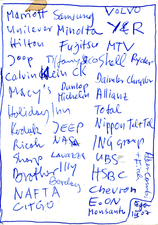 Marriott Samsung VOLVO
Unilever Minolta Y&R
Hilton Fujitsu MTV
Joop Tiffany & Co Shell Ryder
Calvin Klein CK Daimler Chrysler
Macy's Dunlop Allianz
Michelin
Holiday Inn Total
Kodak JEEP Nippon Tel+Tel
Ricoh NASA ING Group
Lavazza UBS
Brother Illy HSBC
Barclays
NAFTA Chevron
CITGO E.ON
Monsanto